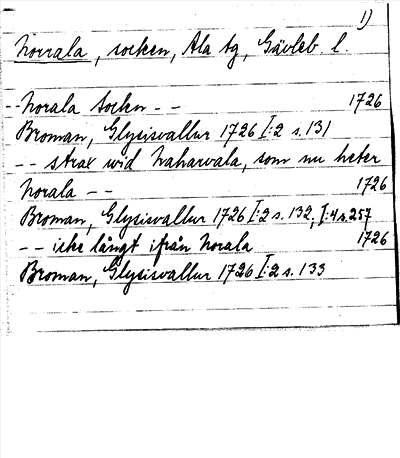 1)
Norrala, socken, Ala tg, Gävleb. l.
-- Norala Socken -- 1726
Broman, Glysisvallur 1726 I:2 s. 131
-- strax wid Naharvala, som nu heter
Norala -- 1726
Broman, Glysisvallur 1726 I:2 s. 132, I:4 s. 257
-- icke långt ifrån Norala 1726
Broman, Glysisvallur 1726 I:2 s. 133